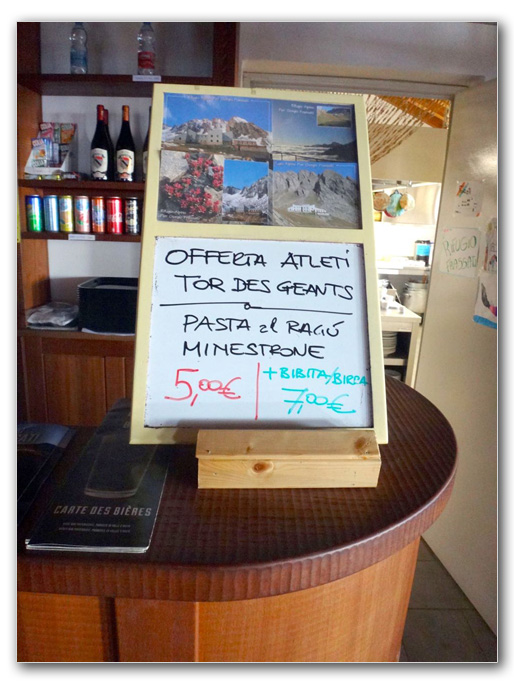 OFFERTA ATLETI
TOR DES GEANTS
PASTA al RAGÚ
MINESTRONE
5,00€
+ BIBITA/BIRRA
7,00€
CARTE DES BIÈRES